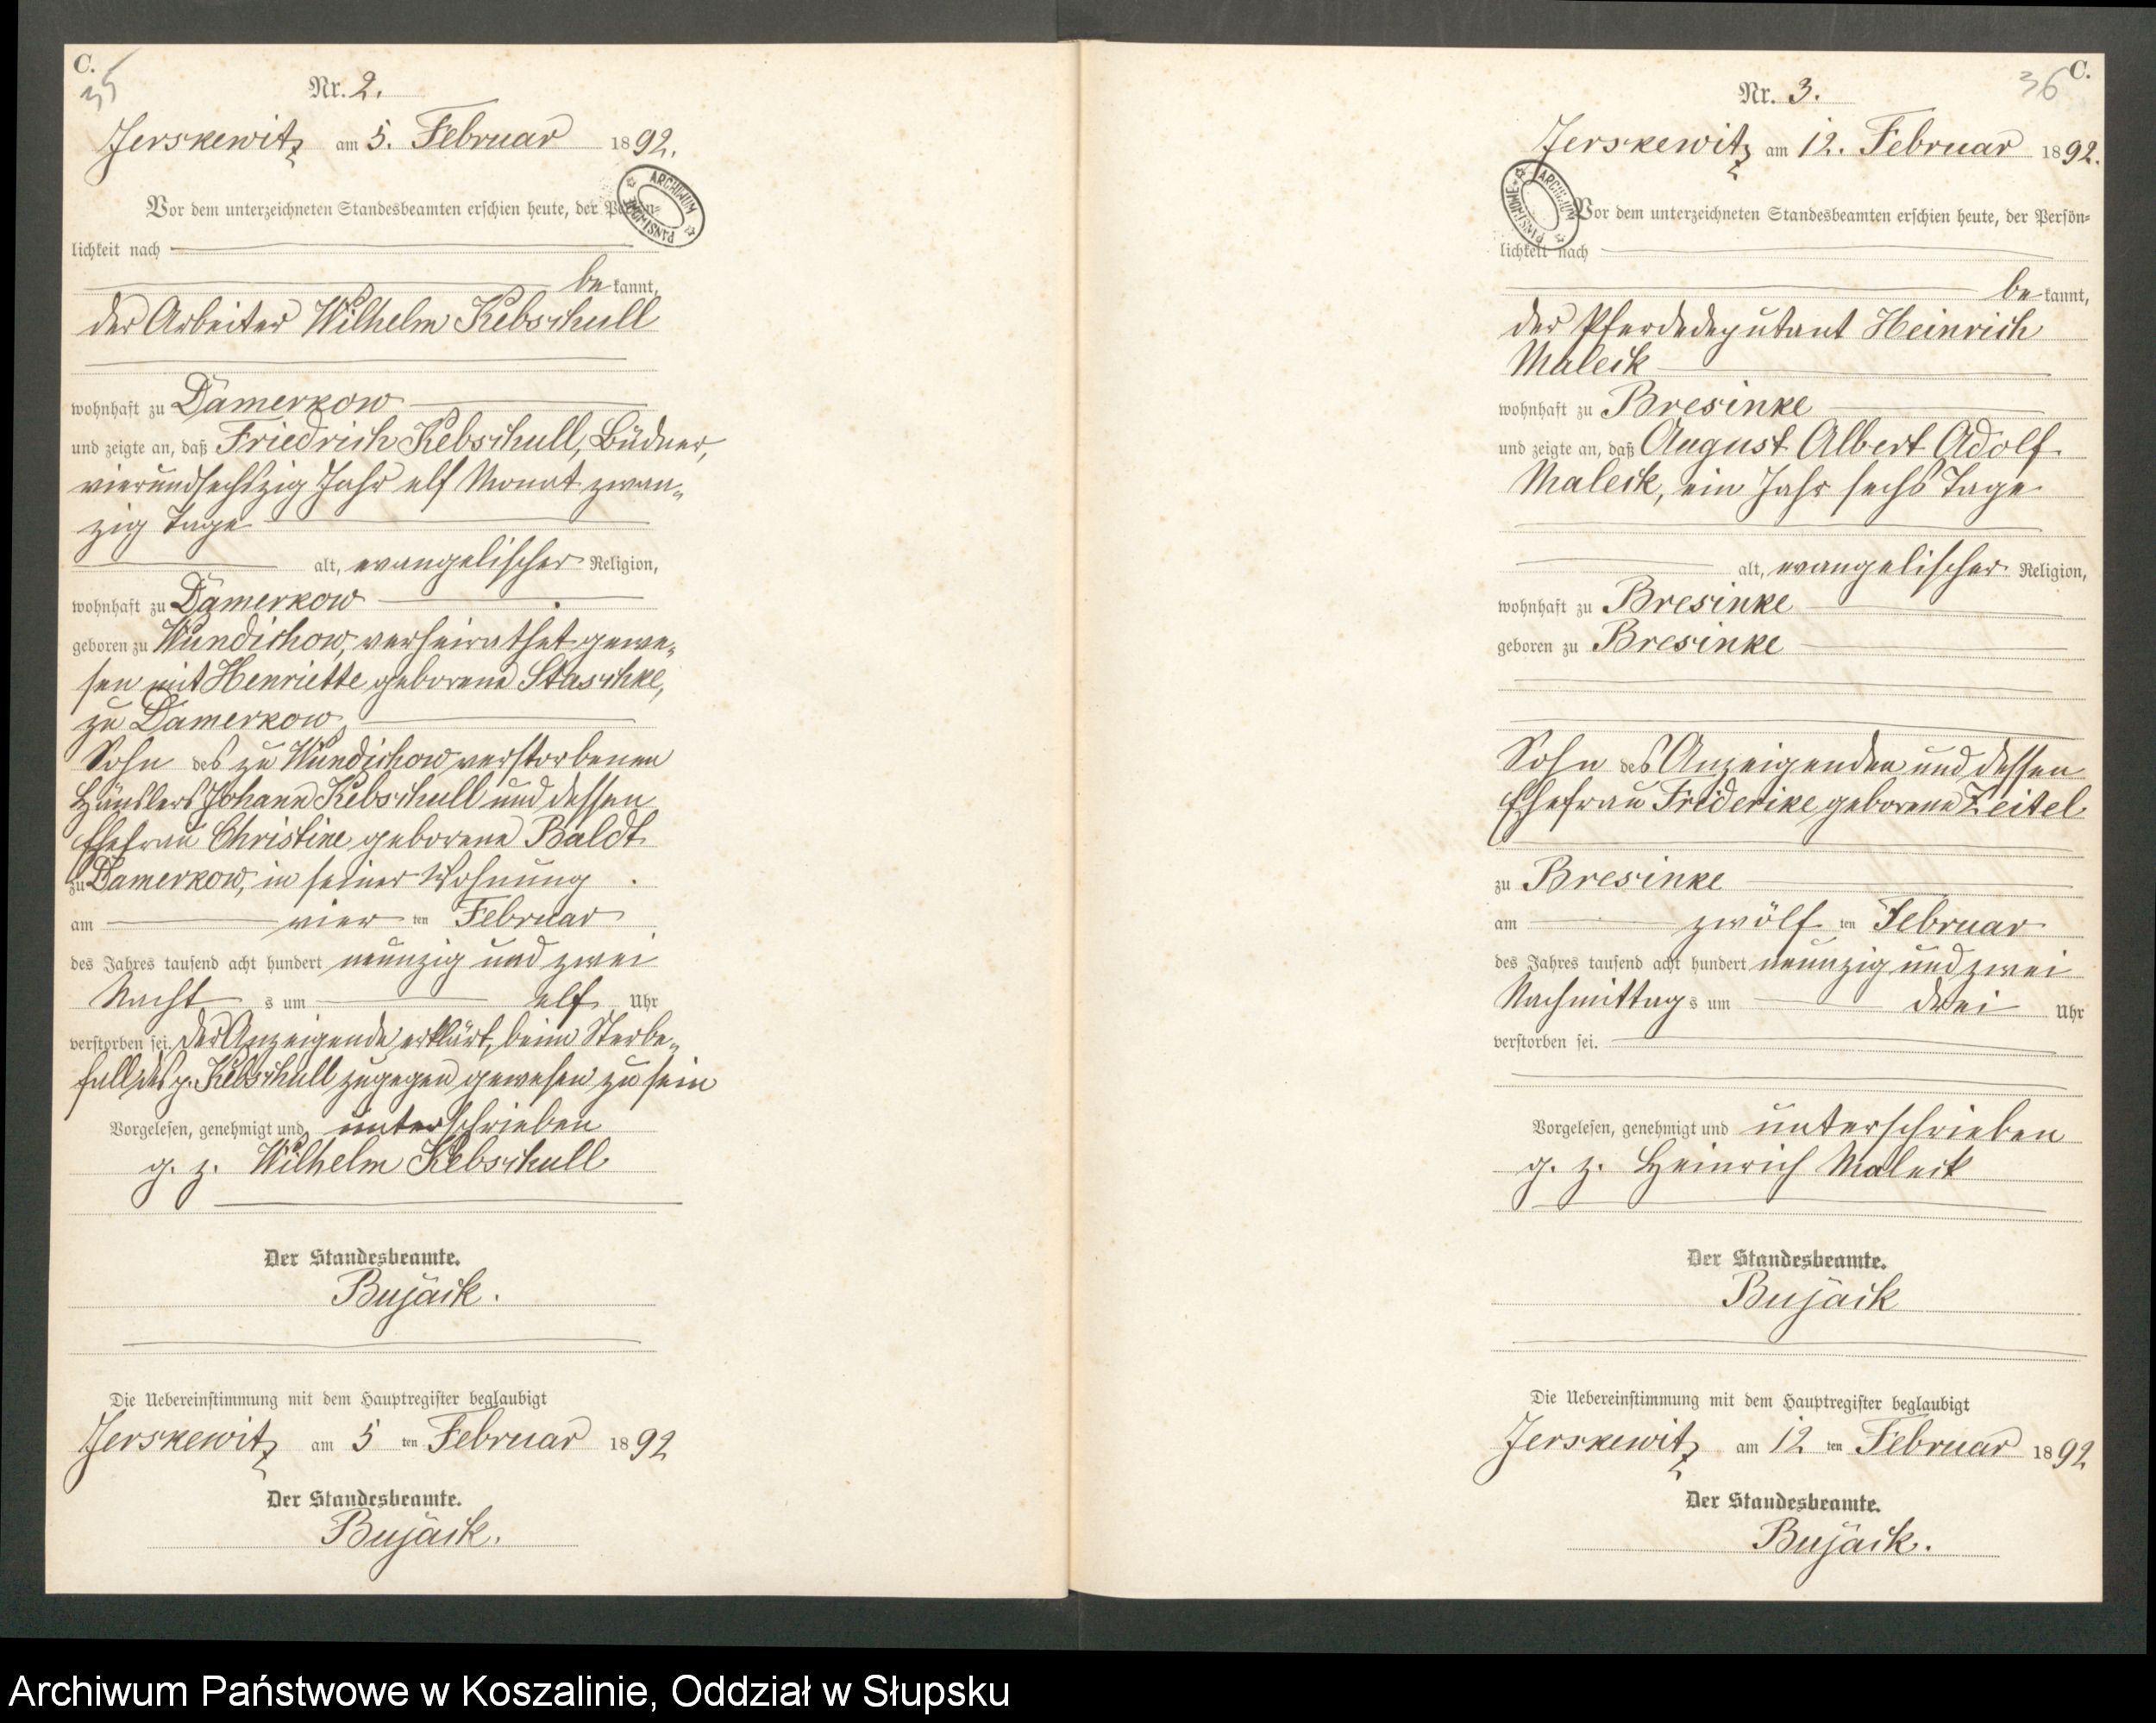 C.
35
Nr. 2.
Jerskewitz am 5. Februar 1892.
Vor dem unterzeichneten Standesbeamten erschien heute, der Persön-
lichkeit nach
be kannt,
der Arbeiter Wilhelm Kebschull
wohnhaft zu Damerkow
und zeigte an, daß Friedrich Kebschull, Büdner,
vierundsechszig Jahr elf Monat zwan-
zig Tage
alt, evangelischer Religion,
wohnhaft zu Damerkow
geboren zu Wundichow, verheirathet gewe-
sen mit Henriette geborene Staschke,
zu Damerkow
Sohn des zu Wundichow verstorbenen
Häuslers Johann Kebschull und dessen
Ehefrau Christine geborene Baldt
zu Damerkow, in seiner Wohnung
am vier ten Februar
des Jahres tausend acht hundert neunzig und zwei
Nacht s um elf Uhr
verstorben sei. Der Anzeigende erklärt, beim Sterbe-
fall des p. Kebschull zugegen gewesen zu sein
Vorgelesen, genehmigt und unterschrieben
g. z. Wilhelm Kebschull
Der Standesbeamte.
Bujack.
Die Uebereinstimmung mit dem Hauptregister beglaubigt
Jerskewitz am 5 ten Februar 1892
Der Standesbeamte.
Bujack.
ARCHIWUM PAŃSTWOWE
C.
36
Nr. 3.
Jerskewitz am 12. Februar 1892.
Vor dem unterzeichneten Standesbeamten erschien heute, der Persön-
lichkeit nach
be kannt,
der Pferdedeputant Heinrich
Maleck
wohnhaft zu Bresinke
und zeigte an, daß August Albert Adolf
Maleck, ein Jahr sechs Tage
alt, evangelischer Religion,
wohnhaft zu Bresinke
geboren zu Bresinke
Sohn des Anzeigenden und dessen
Ehefrau Friderike geborene Zeitel
zu Bresinke
am zwölf ten Februar
des Jahres tausend acht hundert neunzig und zwei
Nachmittag s um drei Uhr
verstorben sei.
Vorgelesen, genehmigt und unterschrieben
g. z. Heinrich Maleck
Der Standesbeamte.
Bujack
Die Uebereinstimmung mit dem Hauptregister beglaubigt
Jerskewitz am 12 ten Februar 1892
Der Standesbeamte.
Bujack.
ARCHIWUM PAŃSTWOWE
Archiwum Państwowe w Koszalinie, Oddział w Słupsku